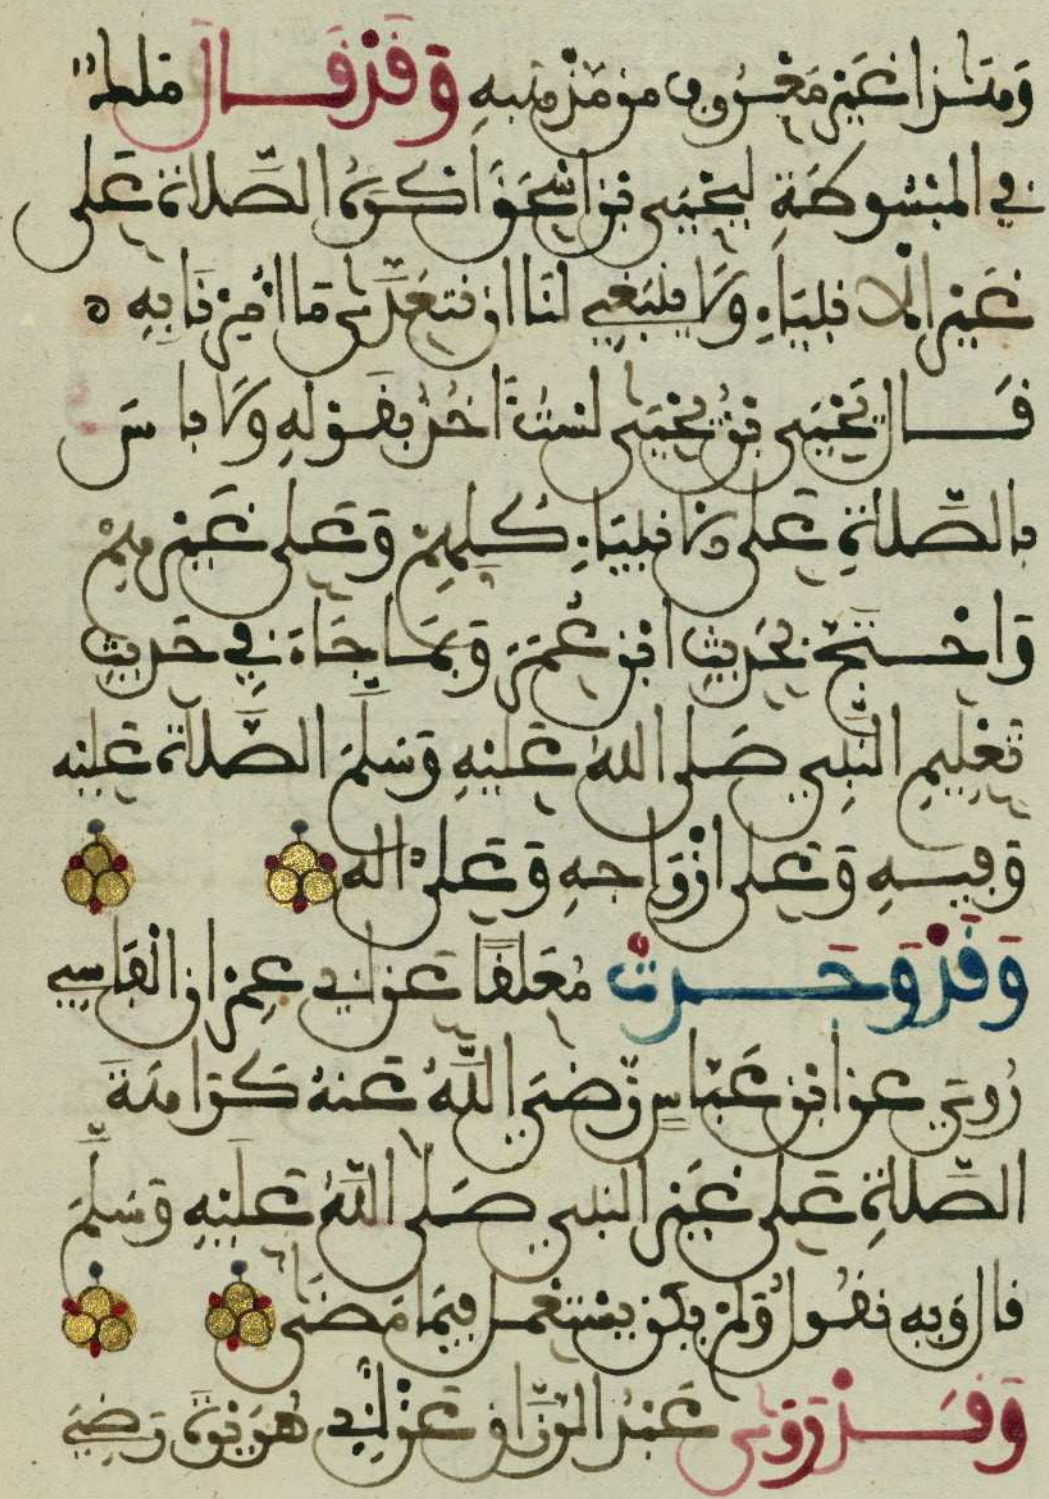 وَهَذَا غَيْرُ مَعْرُوفٍ مِنْ مَذْهَبِهِ وَقَدْ قَالَ مَالِكٌ
فِي الْمَبْسُوطَةِ لِيَحْيَى بْنِ إِسْحَقَ أَكْرَهُ الصَّلَاةَ عَلَى
غَيْرِ الْأَنْبِيَاءِ وَمَا يَنْبَغِي لَنَا أَنْ نَتَعَدَّى مَا أُمِرْنَا بِهِ ه
قَالَ يَحْيَى بْنُ يَحْيَى لَسْتُ آخُذُ بِقَوْلِهِ وَلَا بَأْسَ
بِالصَّلَاةِ عَلَى الْأَنْبِيَاءِ كُلِّهِمْ وَعَلَى غَيْرِهِمْ
وَاحْتَجَّ بِحَدِيثِ ابْنِ عُمَرَ وَبِمَا جَاءَ فِي حَدِيثِ
تَعْلِيمِ النَّبِيِّ صَلَّى اللَّهُ عَلَيْهِ وَسَلَّمَ الصَّلَاةَ عَلَيْهِ
وَفِيهِ وَعَلَى أَزْوَاجِهِ وَعَلَى آلِهِ
وَقَدْ وَجَدْتُ مُعَلَّقًا عَنْ أَبِي عِمْرَانَ الْفَاسِيِّ
رُوِيَ عَنِ ابْنِ عَبَّاسٍ رَضِيَ اللَّهُ عَنْهُ كَرَاهَةَ
الصَّلَاةِ عَلَى غَيْرِ النَّبِيِّ صَلَّى اللَّهُ عَلَيْهِ وَسَلَّمَ
قَالَ وَبِهِ نَقُولُ وَلَمْ يَكُنْ يُسْتَعْمَلُ فِيمَا مَضَى
وَقَدْ رَوَى عَبْدُ الرَّزَّاقِ عَنْ أَبِي هُرَيْرَةَ رَضِيَ